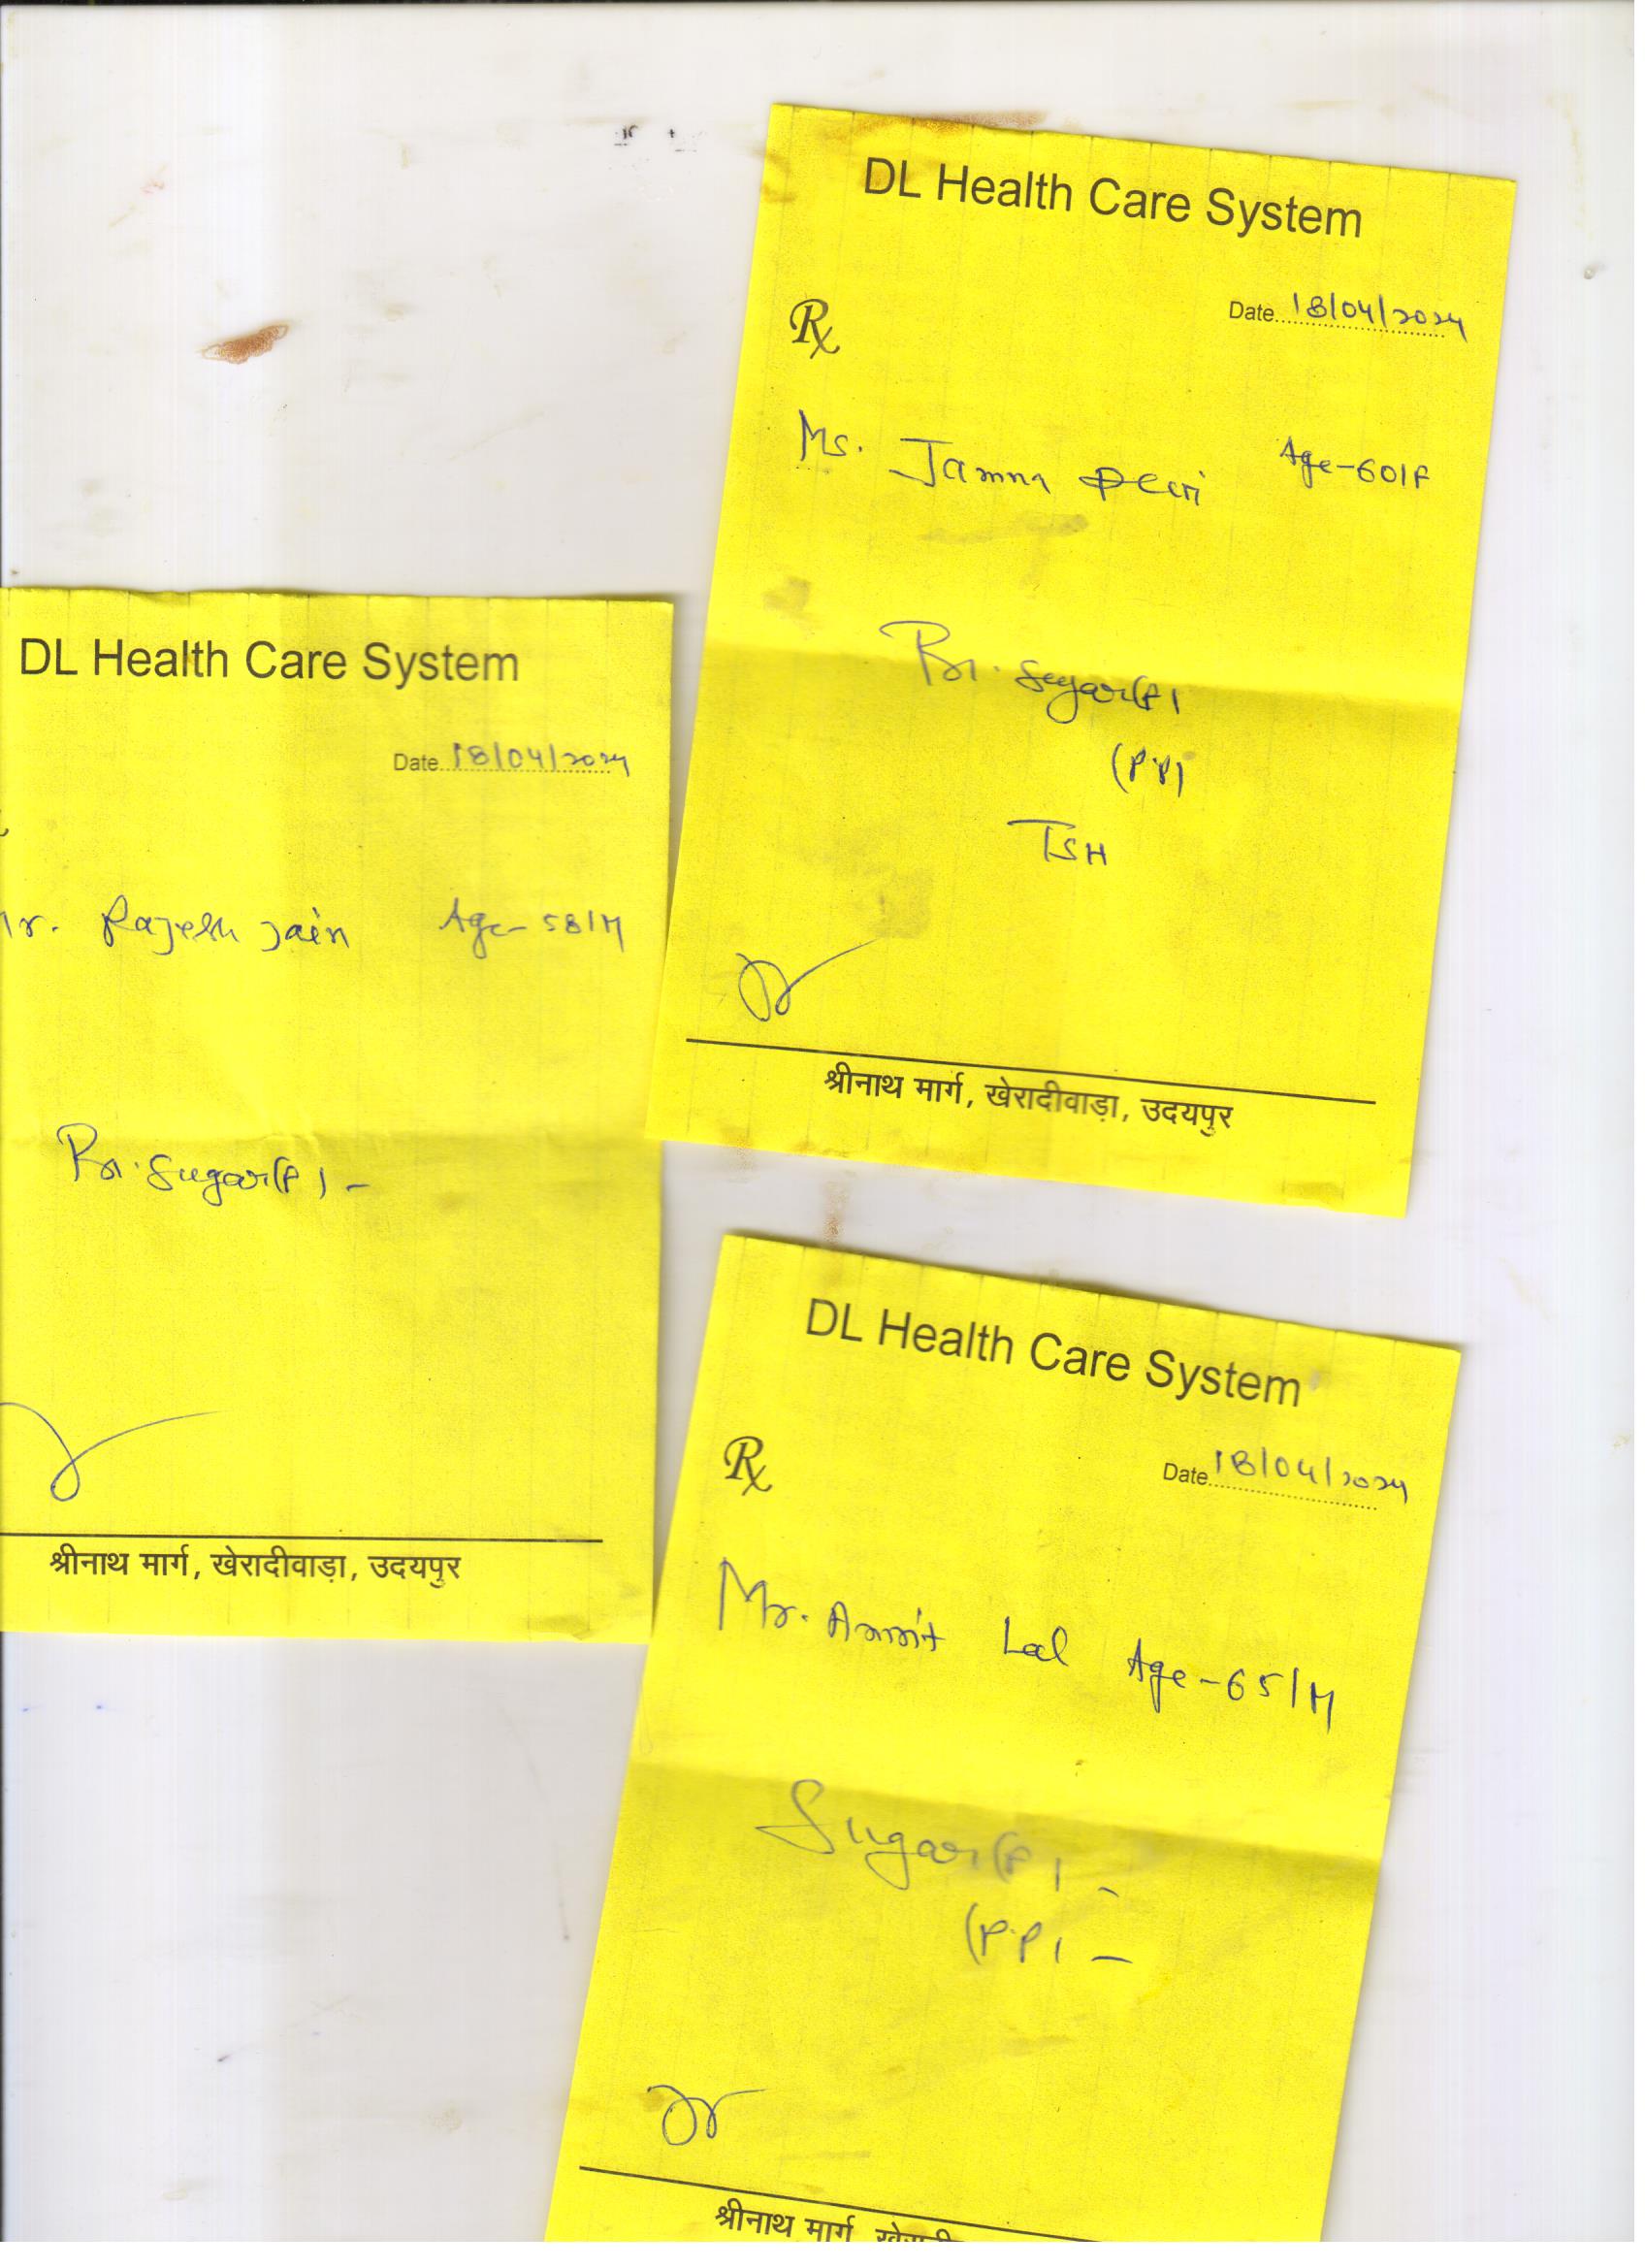 DL Health Care System
Date 18/04/2024
Rx
Ms. Jamna Devi Age-60/F
Bl. Sugar(F)
(P.P)
TSH
श्रीनाथ मार्ग, खेरादीवाड़ा, उदयपुर
DL Health Care System
Date 18/04/2024
Mr. Rajesh Jain Age-58/M
Bl. Sugar(F) -
श्रीनाथ मार्ग, खेरादीवाड़ा, उदयपुर
DL Health Care System
Rx
Date 18/04/2024
Mr. Amrit Lal Age-65/M
Sugar(F) -
(P.P) -
श्रीनाथ मार्ग,